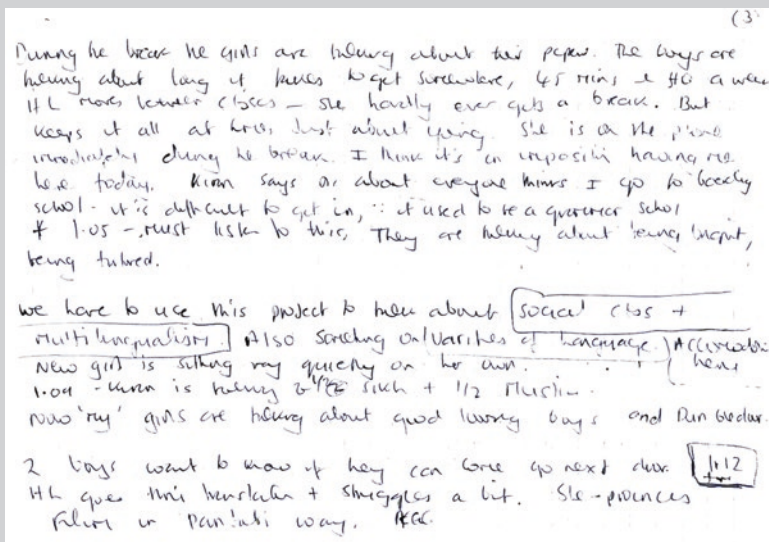 (3
During he break he girls are talking about their papers. The boys are
talking about long it takes to get somewhere, 45 mins
HL moves between classes – she hardly ever gets a break. But
keeps it all at Just about going. She is on the phone
immediately during he break. I think it's an imposition having me
here today. Kiran says about everyone thinks I go to
school - it is difficult to get in, ∵ it used to be a grammar school
* 1.05 – must listen to this, They are talking about being bright,
being tutored.
we have to use this project to talk about social class +
multilingualism. Also something on/varieties of language.
New girl is sitting very quietly on her own.
1.09 - Kiran is talking 1/2 Sikh + 1/2 Muslim
Now 'my' girls are talking about good looking boys and
2 boys want to know if they can come go next door. 1.12
HL goes thro' translation + struggles a bit. She pronounces
in Panjabi way.